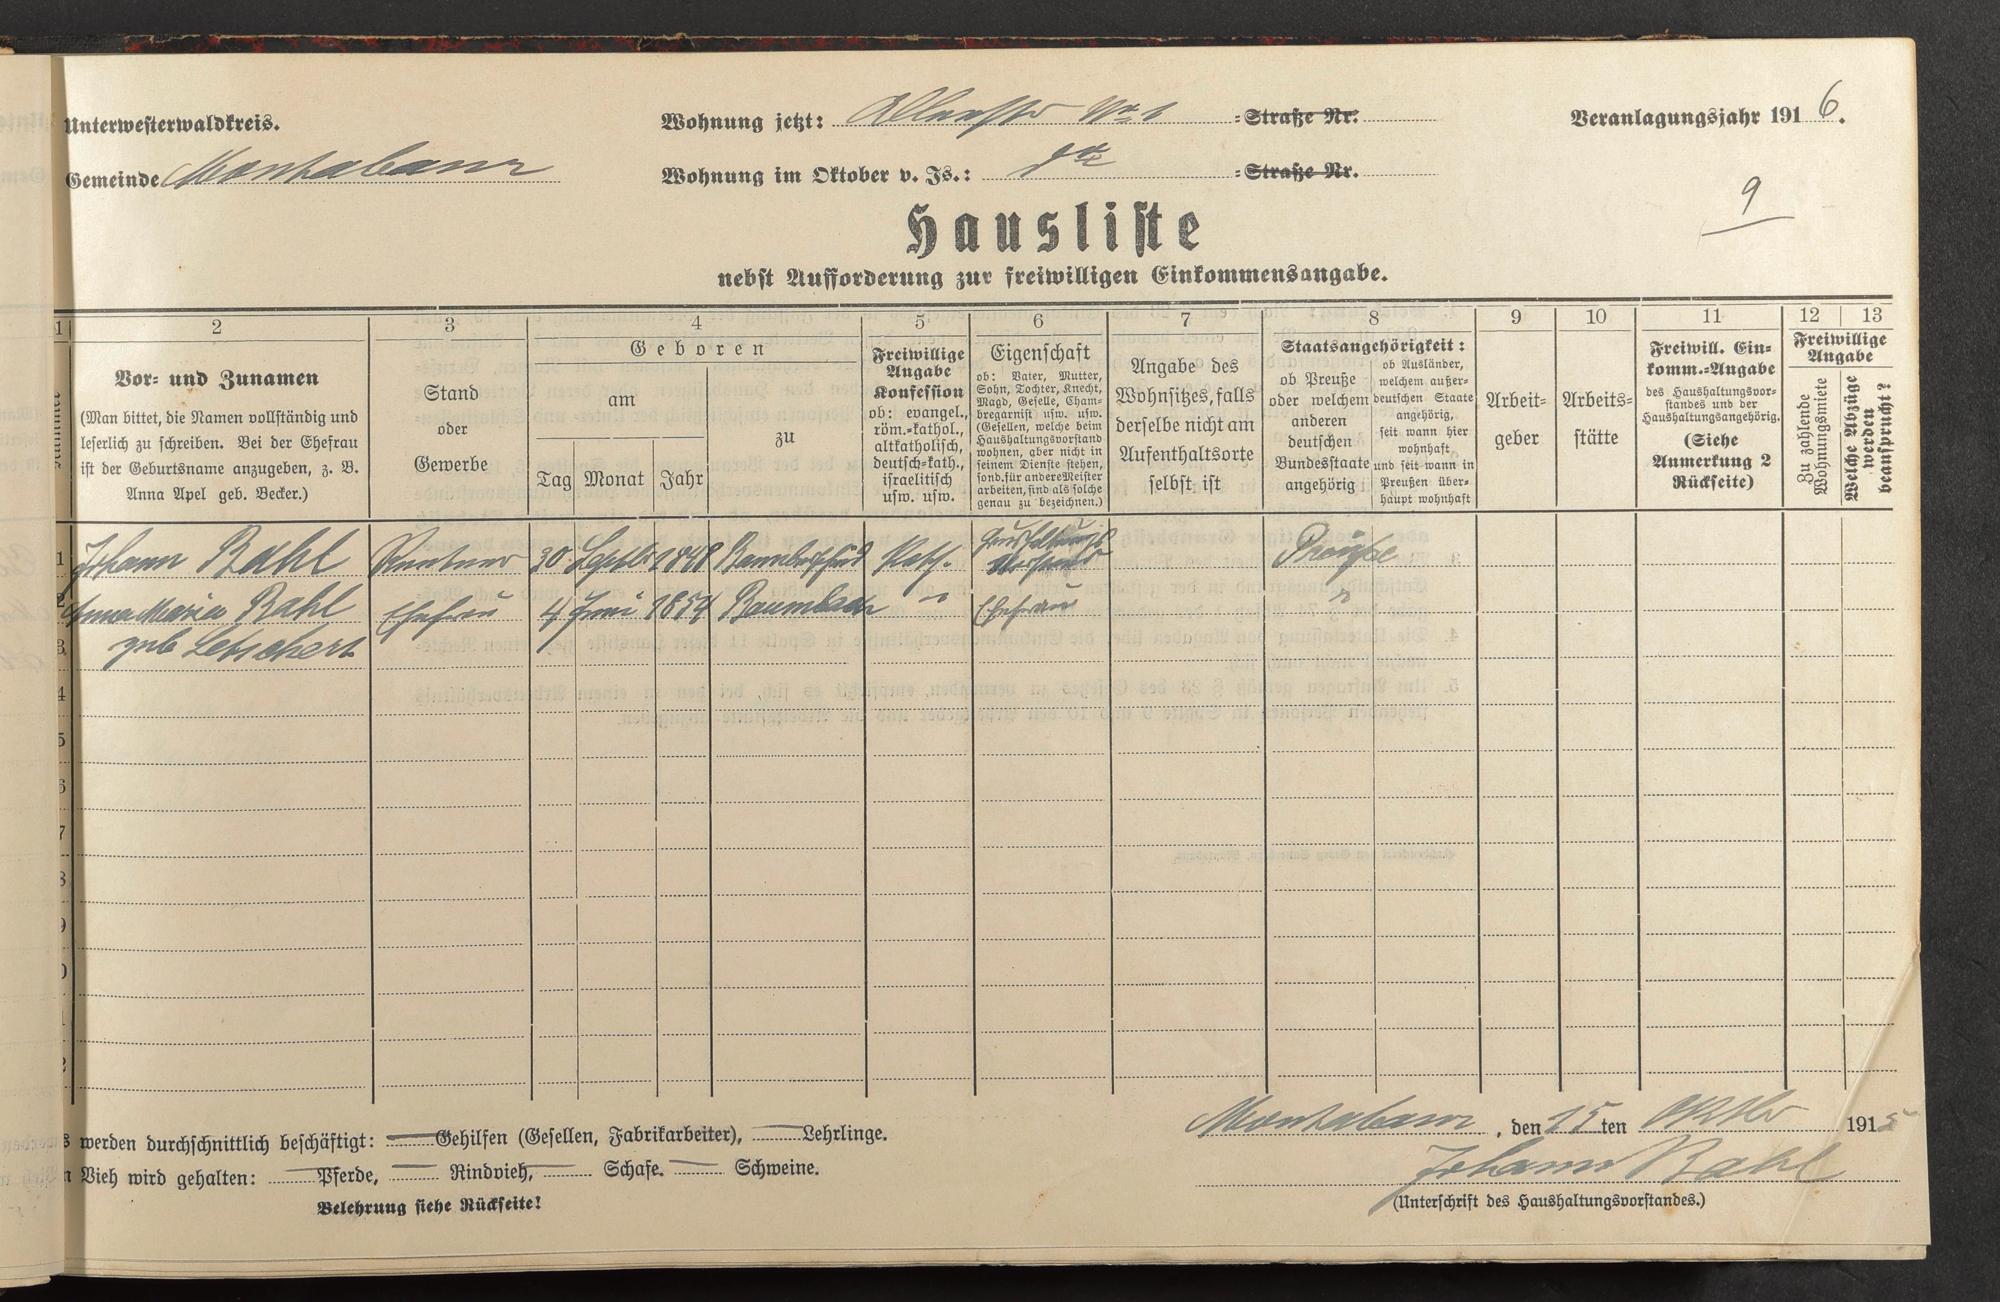 Unterwesterwaldkreis.
Wohnung jetzt: No 1 =Straße Nr.
Veranlagungsjahr 1916.
Gemeinde Montabaur
Wohnung im Oktober v. Js.: dto =Straße Nr.
9
Hausliste
nebst Aufforderung zur freiwilligen Einkommensangabe.
1 2 3 4 5 6 7 8 9 10 11 12 13
Vor- und Zunamen
(Man bittet, die Namen vollständig und
leserlich zu schreiben. Bei der Ehefrau
ist der Geburtsname anzugeben, z. B.
Anna Apel geb. Becker.)
Stand
oder
Gewerbe
Geboren
am
Tag Monat Jahr
zu
Freiwillige
Angabe
Konfession
ob: evangel.,
röm.-kathol.,
altkatholisch,
deutsch-kath.,
israelitisch
usw. usw.
Eigenschaft
ob: Vater, Mutter,
Sohn, Tochter, Knecht,
Magd, Geselle, Cham-
bregarnist usw. usw.
(Gesellen, welche beim
Haushaltungsvorstand
wohnen, aber nicht in
seinem Dienste stehen,
sond. für andere Meister
arbeiten, sind als solche
genau zu bezeichnen.)
Angabe des
Wohnsitzes, falls
derselbe nicht am
Aufenthaltsorte
selbst ist
Staatsangehörigkeit:
ob Preuße
oder welchem
anderen
deutschen
Bundesstaate
angehörig
ob Ausländer,
welchem außer-
deutschen Staate
angehörig,
seit wann hier
wohnhaft
und seit wann in
Preußen über-
haupt wohnhaft
Arbeit-
geber
Arbeits-
stätte
Freiwill. Ein-
komm.-Angabe
des Haushaltungsvor-
standes und der
Haushaltungsangehörig.
(Siehe
Anmerkung 2
Rückseite)
Freiwillige
Angabe
Zu zahlende
Wohnungsmiete
Welche Abzüge
werden
beansprucht?
1 Johann Bahl Rentner 30 Septbr 1848 Kath. Haushaltungs
Vorstand Preuße
2 Anna Maria Bahl Ehefrau 4 Juni 1854 Baumbach " Ehefrau "
3 geb Letschert
4
5
6
7
8
9
0
1
2
werden durchschnittlich beschäftigt: Gehilfen (Gesellen, Fabrikarbeiter), Lehrlinge.
Vieh wird gehalten: Pferde, Rindvieh, Schafe. Schweine.
Belehrung siehe Rückseite!
Montabaur, den 25ten Oktbr 1915
Johann Bahl
(Unterschrift des Haushaltungsvorstandes.)